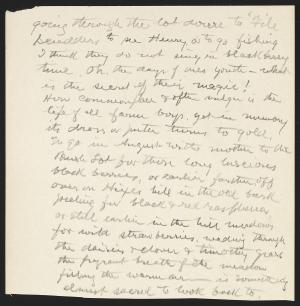 going through the lot over to
to see Henry or to go fishing
I think they do not sing in blackberry
time. Oh, the days of ones youth — what
is the secret of their magic!
How commonplace & often vulgar is the
life of all farm boys, yet in memory
its dross or juter turns to gold.
To go in August with mother to the
Bush Lot for those long luscious
black berries, or earlier further off
over on hill in the old bark
peeling for black & red raspberries,
or still earlier in the hill meadows
for wild strawberries, wading through
the daisies & clover & timothy grass
the fragrant breath of the meadow
filling the warm air — is something
almost sacred to look back to